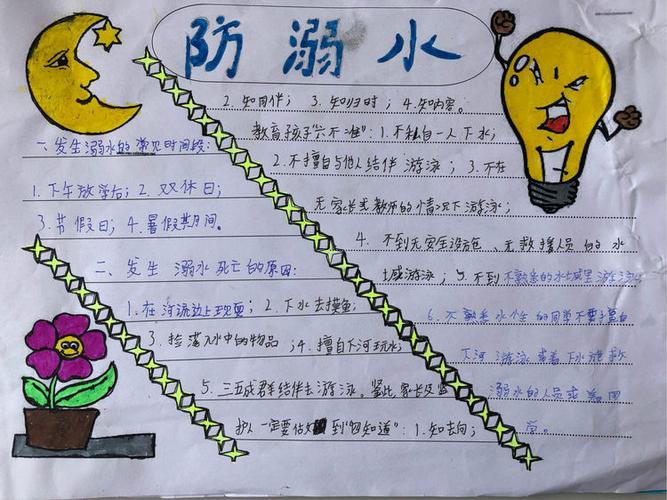 防溺水
一、发生溺水的常见时间段：
1.下午放学后；2.双休日；
3.节假日；4.暑假期间。
二、发生溺水死亡的原因：
1.在河流边上玩耍；2.下水去摸鱼；
3.捡落水中的物品；4.擅自下河玩水；
5.三五成群结伴去游泳。鉴此，家长及监
护人一定要 到"四知道"：1.知去向；
2.知同伴；3.知归时；4.知内容。
教育孩子"六不准"：1.不私自一人下水；
2.不擅自与他人结伴游泳；3.不在
无家长或教师的情况下游泳；
4.不到无安全设施、无救援人员的水
域游泳；5.不到不熟悉的水域里游泳；
6.不熟悉水性的同学不要擅自
下河游泳或者下水施救
溺水的人员或